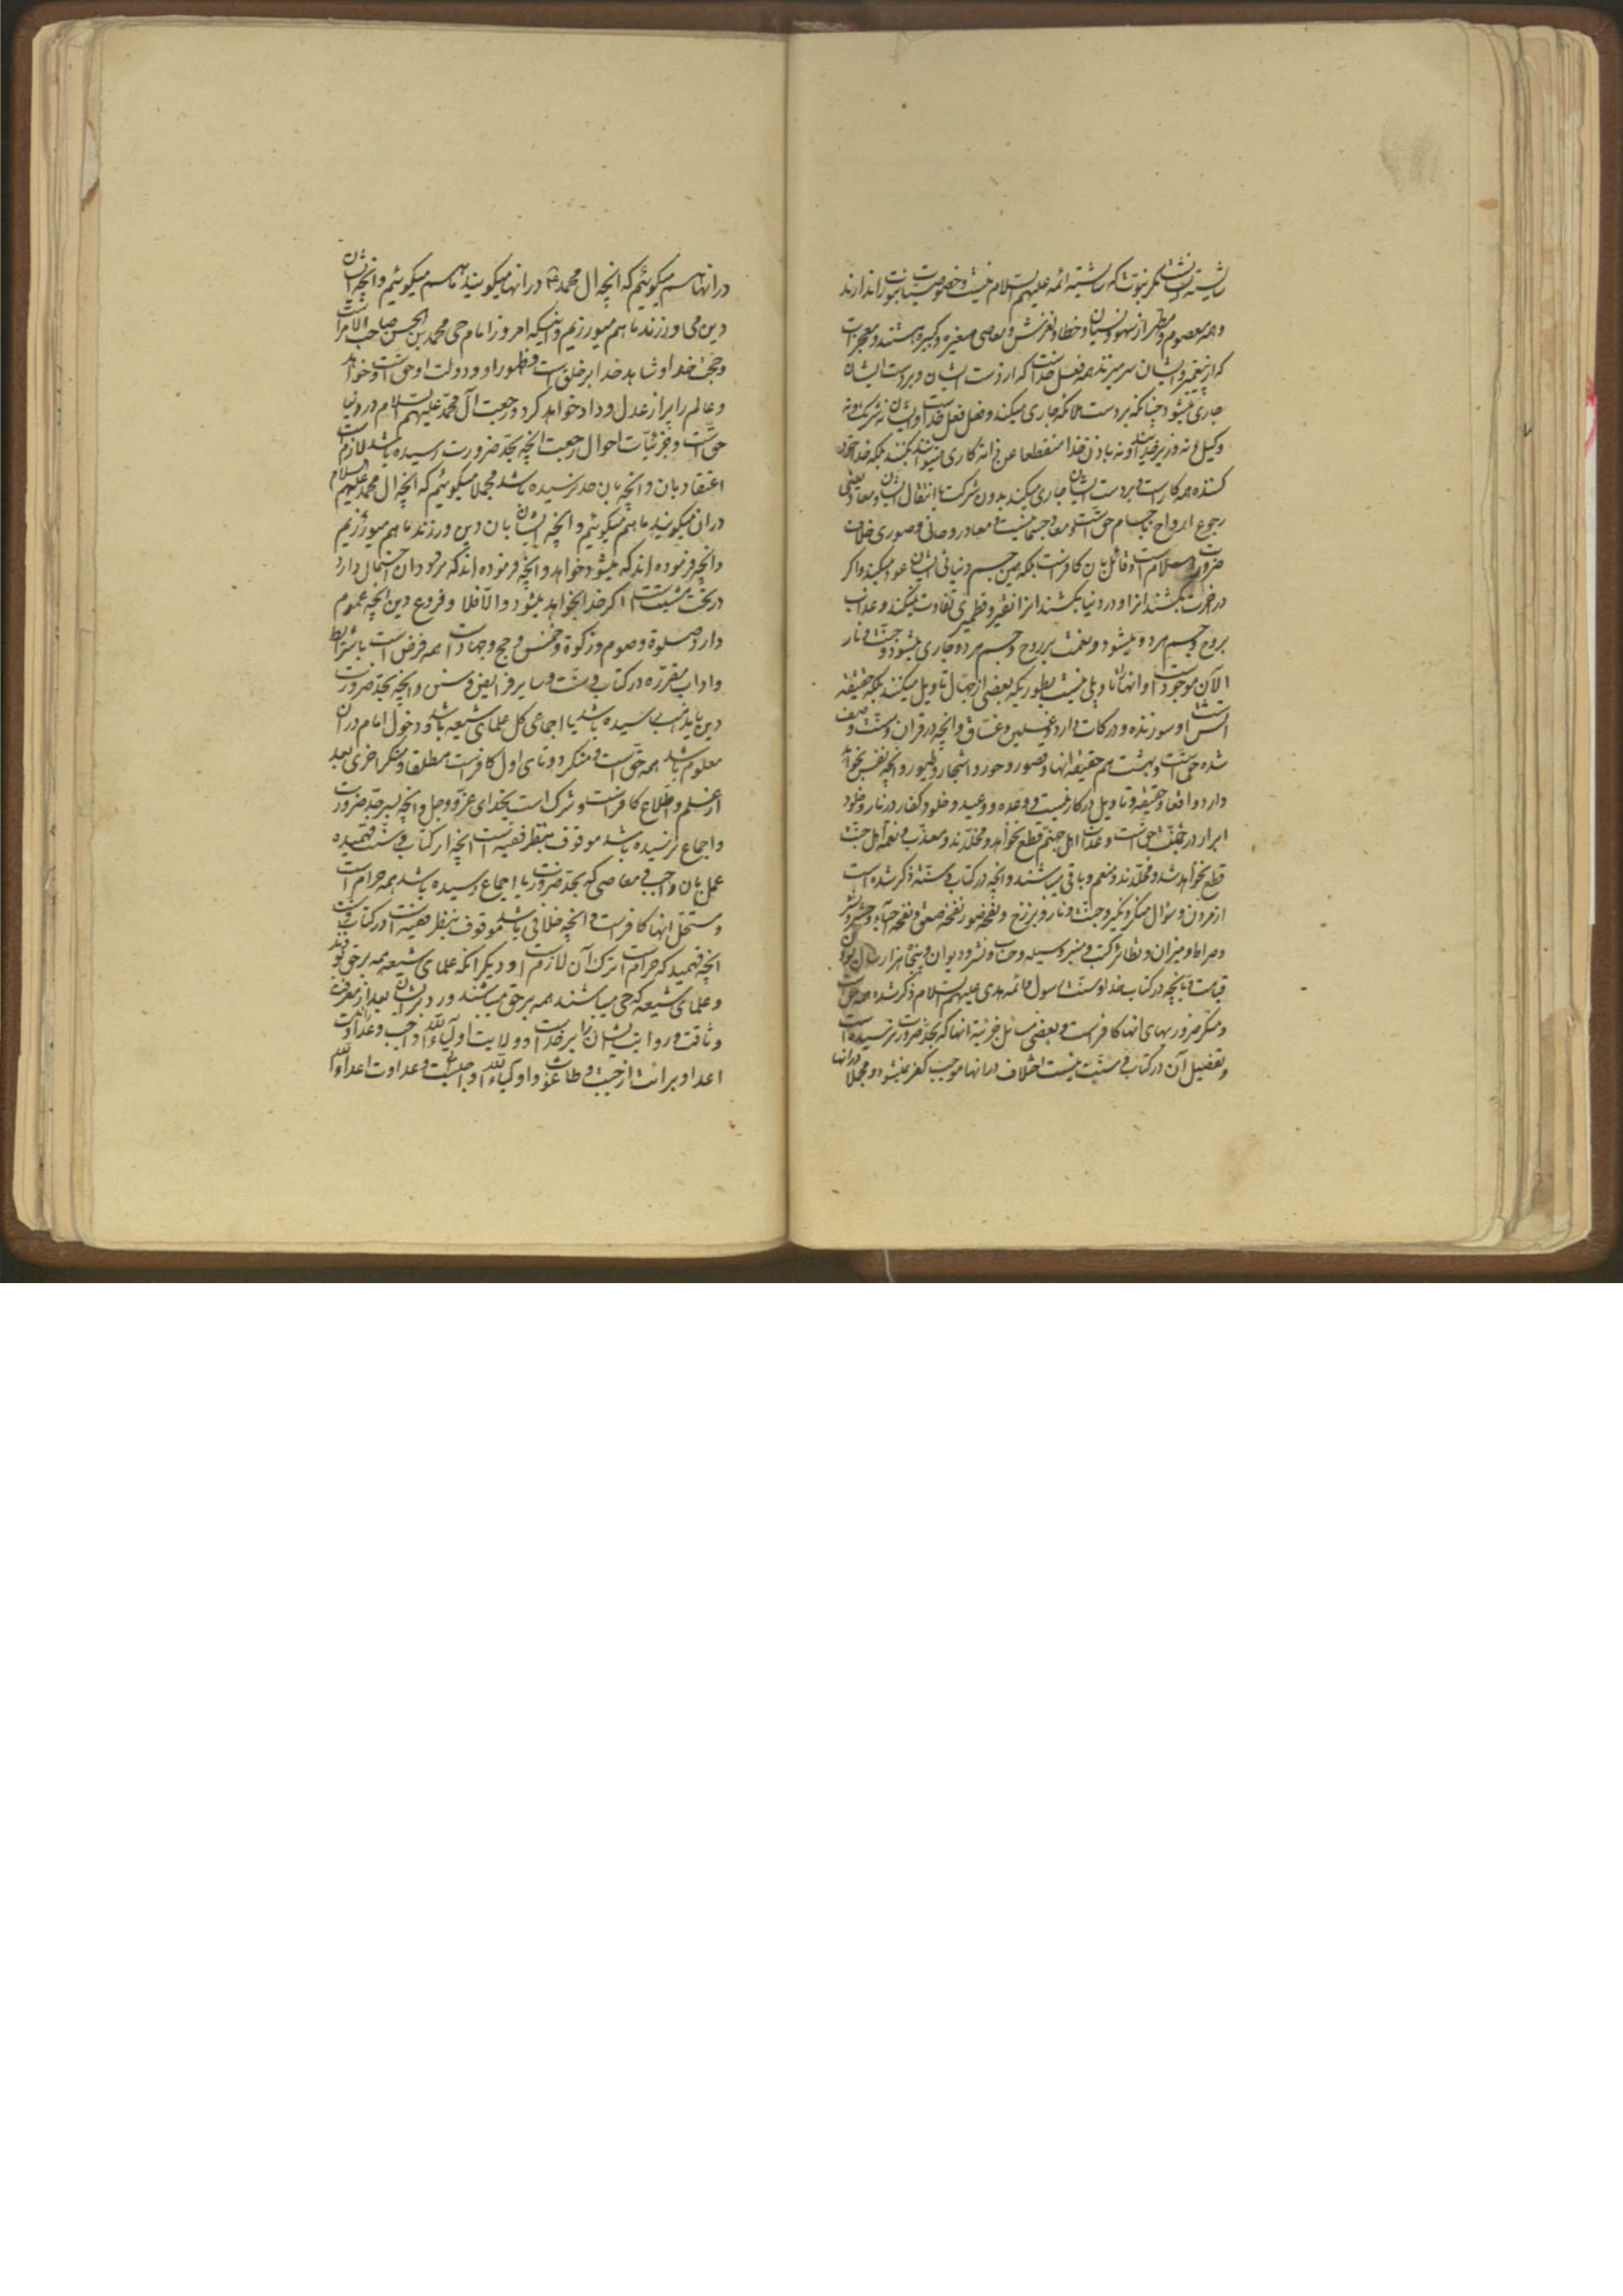 شایسته ایشانست مگر نبوت که شایسته ائمه علیهم السلام نیست و خصوصیات نبوت را ندارند
و همه معصوم و مطهر از سهو و نسیان و خطا و لغزش و معاصی صغیره و کبیره هستند و معجزات
که از پیغمبر و ایشان سر میزند همه فعل خداست که از دست ایشان و بر دست ایشان
جاری میشود چنانکه بر دست ملائکه جاری میکند و فعل فعل خداست و ایشان نه شریک و نه
وکیل و نه وزیر خدایند و نه باذن خدا منقطعا عن الله کاری میتوانند بکنند بلکه خدا خود
کننده همه کار است و بر دست ایشان جاری میکند بدون شرکت یا انتقال ایشان و معاد یعنی
رجوع ارواح باجسام حق است و معاد جسمانیست و معاد روحانی و صوری خلاف
ضرورت اسلام است و قائل بان کافر است بلکه همین جسم دنیائی ایشان عود میکند و اگر
در آخرت بکشند انرا و در دنیا بکشند انرا نقیر و قطمیری تفاوت نمیکند و عذاب
بروح و جسم هر دو میشود و نعمت بر روح و جسم هر دو جاری میشود و جنت و نار
الآن موجود است و انها را تاویلی نیست بطوریکه بعضی از جهال تاویل میکنند بلکه حقیقة
آتش است و سوزنده و درکات دارد و غسلین و غساق و انچه در قرآن و سنت وصف
شده حق است و بهشت هم حقیقة انها و قصور و حور و اشجار و طیور و انچه نفس بخواهد
دارد واقعا و حقیقة و تاویل در کار نیست و وعده و وعید و خلود کفار در نار و خلود
ابرار در جنت حق است و عذاب اهل جهنم قطع نخواهد شد و مخلدند و معذب و نعمة اهل جنة
قطع نخواهد شد و مخلدند و منعم و باقی میباشند و انچه در کتاب و سنة ذکر شده است
از مردن و سؤال منکر و نکیر و جنت و نار و برزخ و نفخه صور نفخه صعق و نفخه احیاء و حشر و نشر
و صراط و میزان و تطایر کتب و منبر وسیله و حساب و نشر و دیوان و پنجاه هزار سال بودن
قیامت و انچه در کتاب خدا و سنت رسول و ائمه هدی علیهم السلام ذکر شده همه حق است
و منکر ضروریهای انها کافر است و بعضی مسائل جزئیة انها که بحد ضرورت نرسیده است
و تفصیل آن در کتاب و سنت نیست اختلاف در انها موجب کفر نمیشود و مجملا در انها
در انها هم میگوئیم که انچه ال محمد ع در انها میگویند ما هم میگوئیم و انچه ایشان
دین می ورزند ما هم میورزیم و اینکه امروز امام حی محمد بن الحسن صاحب الامر است
و حجت خدا و شاهد خدا بر خلق است و ظهور او و دولت او حق است و خواهد امد
و عالم را پر از عدل و داد خواهد کرد و رجعت آل محمد علیهم السلام در دنیا
حق است و جزئیات احوال رجعت انچه بحد ضرورت رسیده باشد لازم است
اعتقاد بان و انچه بان حد نرسیده باشد مجملا میگوئیم که انچه ال محمد علیهم السلام
در ان میگویند ما هم میگوئیم و انچه ایشان بان دین ورزند ما هم میورزیم
و انچه فرموده اند که میشود خواهد و انچه فرموده اند که در وجود ان احتمال دارد
در تحت مشیت است اگر خدا بخواهد میشود و الا فلا و فروع دین انچه عموم
دارد صلوة و صوم و زکوة و خمس و حج و جهاد است همه فرض است با شرایط
و اداب مقرره در کتاب و سنت و سایر فرایض و سنن و انچه بحد ضرورت
دین یا مذهب رسیده باشد یا اجماعی کل علمای شیعه باشد و دخول امام در ان
معلوم باشد همه حق است و منکر دو تای اول کافر است مطلقا و منکر اخری بعد
از علم و اطلاع کافر است و شرک است بخدای عز و جل و انچه بسرحد ضرورت
و اجماع نرسیده باشد موقوف بنظر فقیه است انچه از کتاب و سنت فهمیده
عمل بان واجب و معاصی که بحد ضرورت یا اجماع رسیده باشد همه حرام است
و مستحل انها کافر است و انچه خلافی باشد موقوف بنظر فقیه است در کتاب و سنت
انچه فهمید که حرام است ترک آن لازم است و دیگر انکه علمای شیعه همه بر حق بودند
و علمای شیعه که حی میباشند همه بر حق میباشند و رد بر ایشان بعد از معرفت
وثاقت و روایت ایشان رد بر خداست و ولایت اولیاء الله واجب و عداوت
اعدا و برائت از جبت و طاغوت و اولیاء واجبست و عداوت اعداء الله